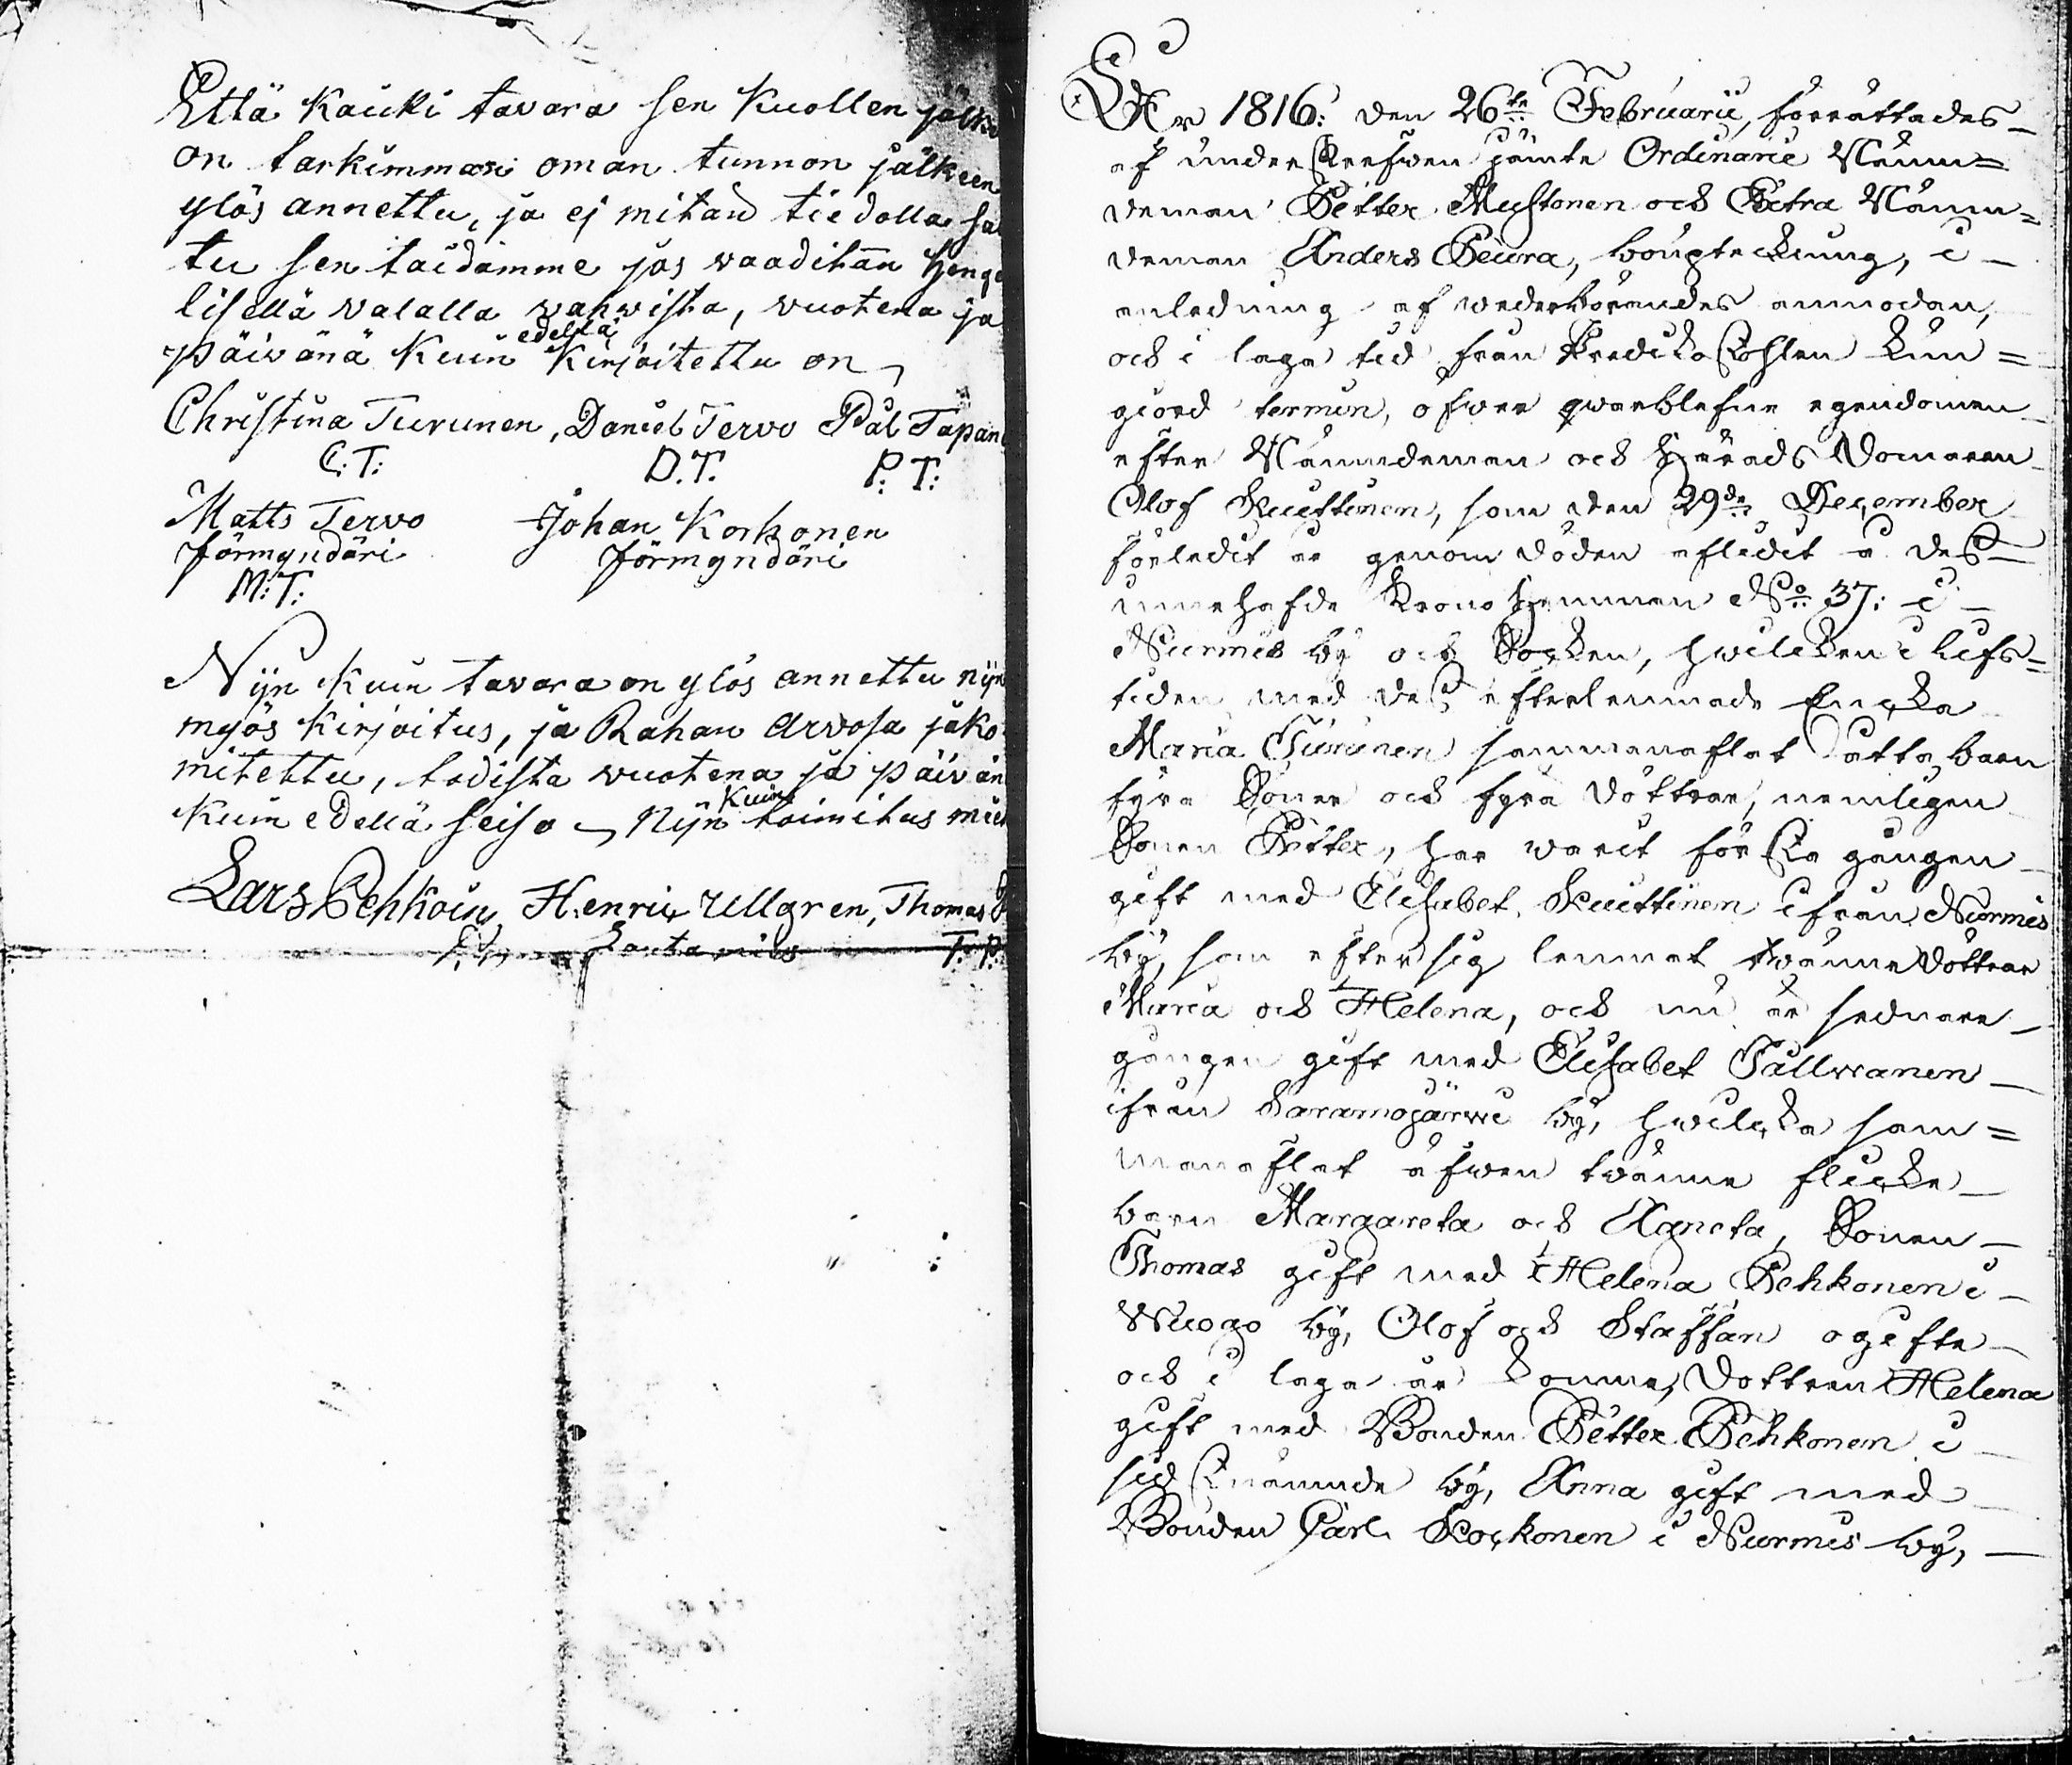 Että Kaicki tavara sen Kuollen jälke
on tarkimman oman tunnon jälkeen
ylös annettu, ja ej mitän tiedolla sa
tu sen taidamme jos vaaditan Henge
lisellä valalla vahvista, vuotena ja
edellä
päivänä Kuin Kirjoitettu on
Christina Turunen, Daniel Tervo Pål Tapan
C: T: D. T. P: T:
Matts Tervo Johan Korhonen
förmyndäri förmyndäri
M: T:
Nijn Kuin tavara on ylös annettu nijn
myös Kirjoitus, ja Rahan Arvosa jako
mitettu, todista vuotena ja päivän
Kuin
Kuin edellä seiso Nijn toimitus mieh
Lars Pehkoin, Henric Ullgren, Thomas P
Lautamies T: P:
År 1816: den 26te Februarii, förrättades
af underskrefwen jämte Ordinarie Nämn=
deman Petter Mustonen och Extra Nämn=
deman Anders Peura, bouptekning, i
anledning af wederbörandes anmodan,
och i laga tid från Prediko Stohlen kun=
giord termin, öfwer qwarblefne egendomen
efter Nämndeman och Härads Domaren
Olof Kuittinen, som den 29de December
förledit år genom döden afledit å dess
innehafde Kronohemman No 37: i
Nurmis by och Socken, hwilcken i lifs=
tiden med dess efterlemnade Encka
Maria Turunen sammanaflat åtta barn
fyra Söner och fyra döttrar, nemligen
Sonen Petter, har warit förska gången
gift med Elisabet Kuittinen ifrån Nurmis
by, som efter sig lemnat twänne döttrar
Maria och Helena, och nu är sednare
gången gift med Elisabet Tallwanen
ifrån Saramojärwi by, hwilcka sam=
manaflat äfwen twänne flicke
barn Margareta och Agneta, Sonen
Thomas gift med Helena Pehkonen i
Wuogo by, Olof och Staffan ogifte
och i laga år komne, Dottren Helena
gift med Bonden Petter Pehkonen i
sidstnämde by, Anna gift med
Bonden Carl Kockonen i Nurmis by,